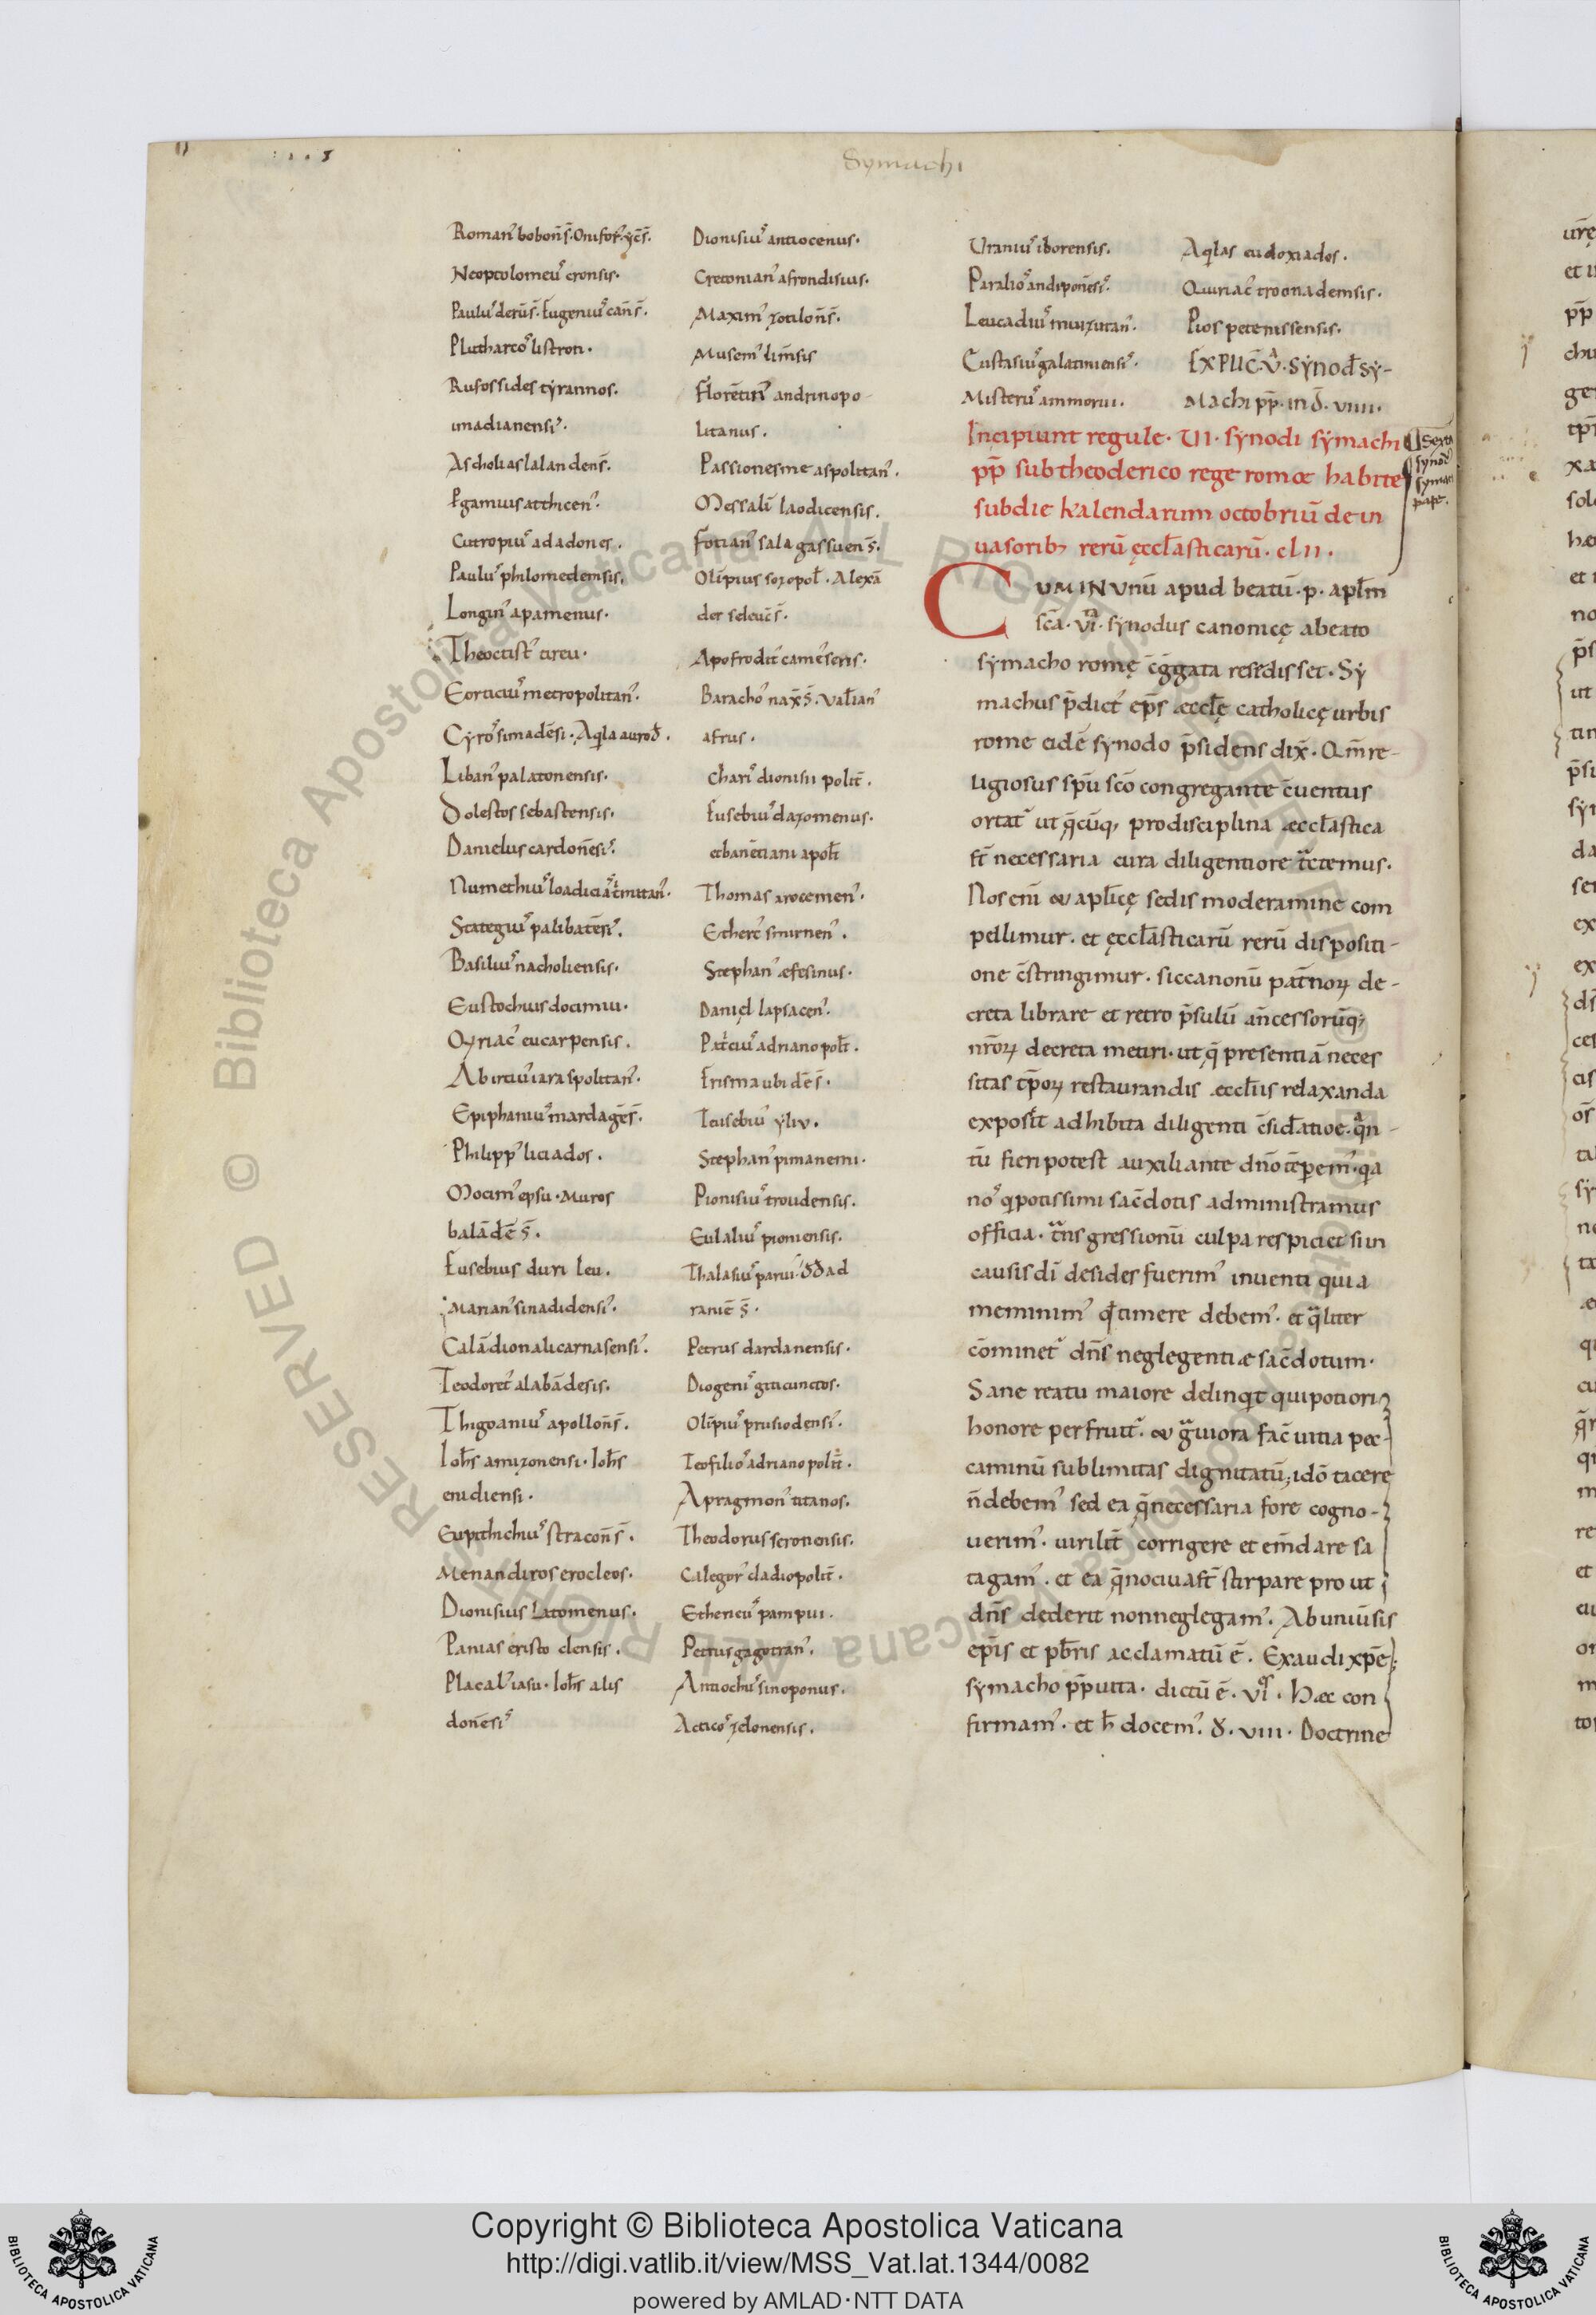 Symachi
Romanꝰ bobon̄s̄. Onifor. ẏcs̄.
Neoptolomeuꝰ cronsis.
Pauluꝰ derūs̄. Eugeniuꝰ can̄s̄.
Plutharcoꝰ listron.
Rufossides tẏrannos.
imadianensiꝰ.
Ascholiaslalandens̄.
Pgamius atthicenꝰ.
Cutropiuꝰ adadones.
Pauluꝰ philomedemsis.
Longinꝰ apamenus.
Theoctistꝰ tireu.
Eorticiuꝰ metropolitanꝰ.
Cẏroꝰ simadēsi. Aqla auroð.
Libanꝰ palatonensis.
Dolestos sebastensis.
Danielus cardon̄esiꝰ.
Numethiuꝰ loadicia
Stateguiꝰ palibatēsiꝰ.
Basiliuꝰ nacholiensis.
Eustochius docimiu.
Oyriacꝰ eucarpensis.
Abirtiuꝰ iaraspolitanꝰ.
Epiphaniuꝰ mardagēs̄.
Philippꝰ liciados.
Mocimꝰ epsu. Muros
balādēs̄.
Eusebius duri leu.
Marianꝰ sinadidensiꝰ.
Calādion alicarnasensiꝰ.
Teodoretꝰ alabādesis.
Thigoaniuꝰ apollon̄s̄.
Ioh̄s amizonensi. Ioh̄s
enidiensi.
Eupithichiuꝰ stracon̄s̄.
Menandiros erocleos.
Dionisius Latomenus.
Panias eristo clensis.
Placalꝰ iasu. Ioh̄s alis
donēsiꝰ
Dionisiuꝰ antiocenus.
Cretonianꝰ afrondisius.
Maximꝰ zotilon̄s̄.
Musemꝰ lim̄sis
Florētinꝰ andrinopo-
litanus.
Passionesme aspolitanꝰ.
Messalī laodicensis.
Fotianꝰ sala gassuens̄.
Olīpius sozopol̄. Alexā
der seleuc̄s̄.
Apofroditꝰ camēseris.
Barachoꝰ nax̄s̄. Val̄ianꝰ
afrus.
Chariꝰ dionisii polit̄.
Eusebiuꝰ dazomenus.
etbanētiani apol̄t
Thomas arocemenꝰ.
Ethercꝰ smirnenꝰ.
Stephanꝰ æfesinus.
Daniel lapsacenꝰ.
Patciuꝰ adriano pol̄t.
Erisma ubi dēs̄.
Teusebiuꝰ ẏliu.
Stephanꝰ pimanemi.
Pionisiuꝰ troudensis.
Eulaliuꝰ pioniensis.
Thalasiuꝰ parui. ððad
raniēs̄.
Petrus dardanensis.
Diogeniꝰ giticinctos.
Olīpiuꝰ prusiodensiꝰ.
Teofilioꝰ adriano polit̄.
Apragmonꝰ titanos.
Theodorus seronensis.
Calegorꝰ cladiopolit̄.
Ethericuꝰ pampui.
Petrus gagotranꝰ.
Antiochuꝰ sinoponus.
Acticoꝰ zelonensis.
Uraniuꝰ iborensis.
Paralioꝰ andiponēsiꝰ.
Leucadiuꝰ muizutanꝰ.
Custasiuꝰ galatiniensiꝰ.
Misteruꝰ ammorui.
Aqlas eudoxiados.
Quiriacꝰ troonademsis.
Pios petenissensis.
EXPLIC̄. V. SẎnod̄ SẎ-
Machi pp̄. ind̄. viiii.
Incipiunt regule. VI. sẏnodi sẏmachi
pp̄ sub theoderico rege romæ habite
subdie kalendarum octobriū de in
uasorib; rerū ęccl̄asticarū. cl II.
Sexta
synod̄
symari
pape.
CUM IN Unū apud beatū. p. apl̄m
sc̄a. VI. synodus canonicę abeato
sẏmacho romę c̄ggata resedisset. Sẏ
machus p̄dictꝰ ep̄s æccl̄ę catholicę urbis
rome eidē sẏnodo p̄sidens dix̄. Qm̄ re-
ligiosus sp̄u sc̄o congregante c̄uentus
ortatᷣ ut q̄cūq, prodisciplina æccl̄astica
st̄ necessaria cura diligentiore tctemus.
Nos enī & apl̄icę sedis moderamine com
pellimur. et ęccl̄asticarū rerū dispositi-
one c̄stringimur. sic canonū pat̄noꝝ de-
creta librare et retro p̄sulū an̄cessorūq;
nr̄oꝝ decreta metiri. ut q̄ presentiā neces
sitas tp̄oꝝ restaurandis æccl̄iis relaxanda
exposit̄ adhibita diligenti c̄sid̄atioē. qn-
tū fieri potest auxiliante dn̄o tēperemꝰ. qa
noꝰ qpotissimi sac̄dotis administramus
officia. tnsgressionū culpa respiciet si in
causis dī desides fuerimꝰ inuenti quia
meminimꝰ qd timere debemꝰ. et qliter
cōminetᷣ dn̄s neglegentiæ sac̄dotum.
Sane reatu maiore delinqt qui potiori
honore perfruitᷣ. & guiora fac̄ uitia pec-
caminū sublimitas dignitatū; idō tacere
n̄ debemꝰ sed ea q̄ necessaria fore cogno-
uerimꝰ. uirilit̄ corrigere et em̄dare sa
tagamꝰ. et ea q̄ nociua st̄ stirpare pro ut
dn̄s dederit non neglegamꝰ. Ab uniūsis
ep̄is et pb̄ris acclamatū ē. Exaudi xp̄e;
sẏmacho pp̄ uita. dictū ē. VI. Hæc con
firmamꝰ. et h̄ docemꝰ. ꝺ. VIII. Doctrine
Copyright © Biblioteca Apostolica Vaticana
http://digi.vatlib.it/view/MSS_Vat.lat.1344/0082
powered by AMLAD·NTT DATA
BIBLIOTECA APOSTOLICA VATICANA
BIBLIOTECA APOSTOLICA VATICANA